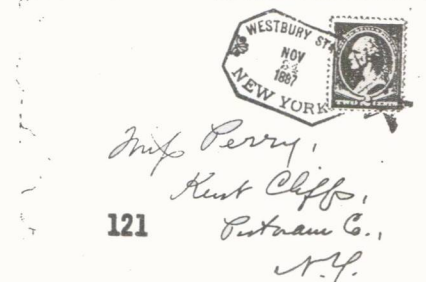 WESTBURY STA
NOV
24
1887
NEW YORK
TWO CENTS
Miss Perry,
Kent Cliffs,
121
Putnam Co.,
N.Y.